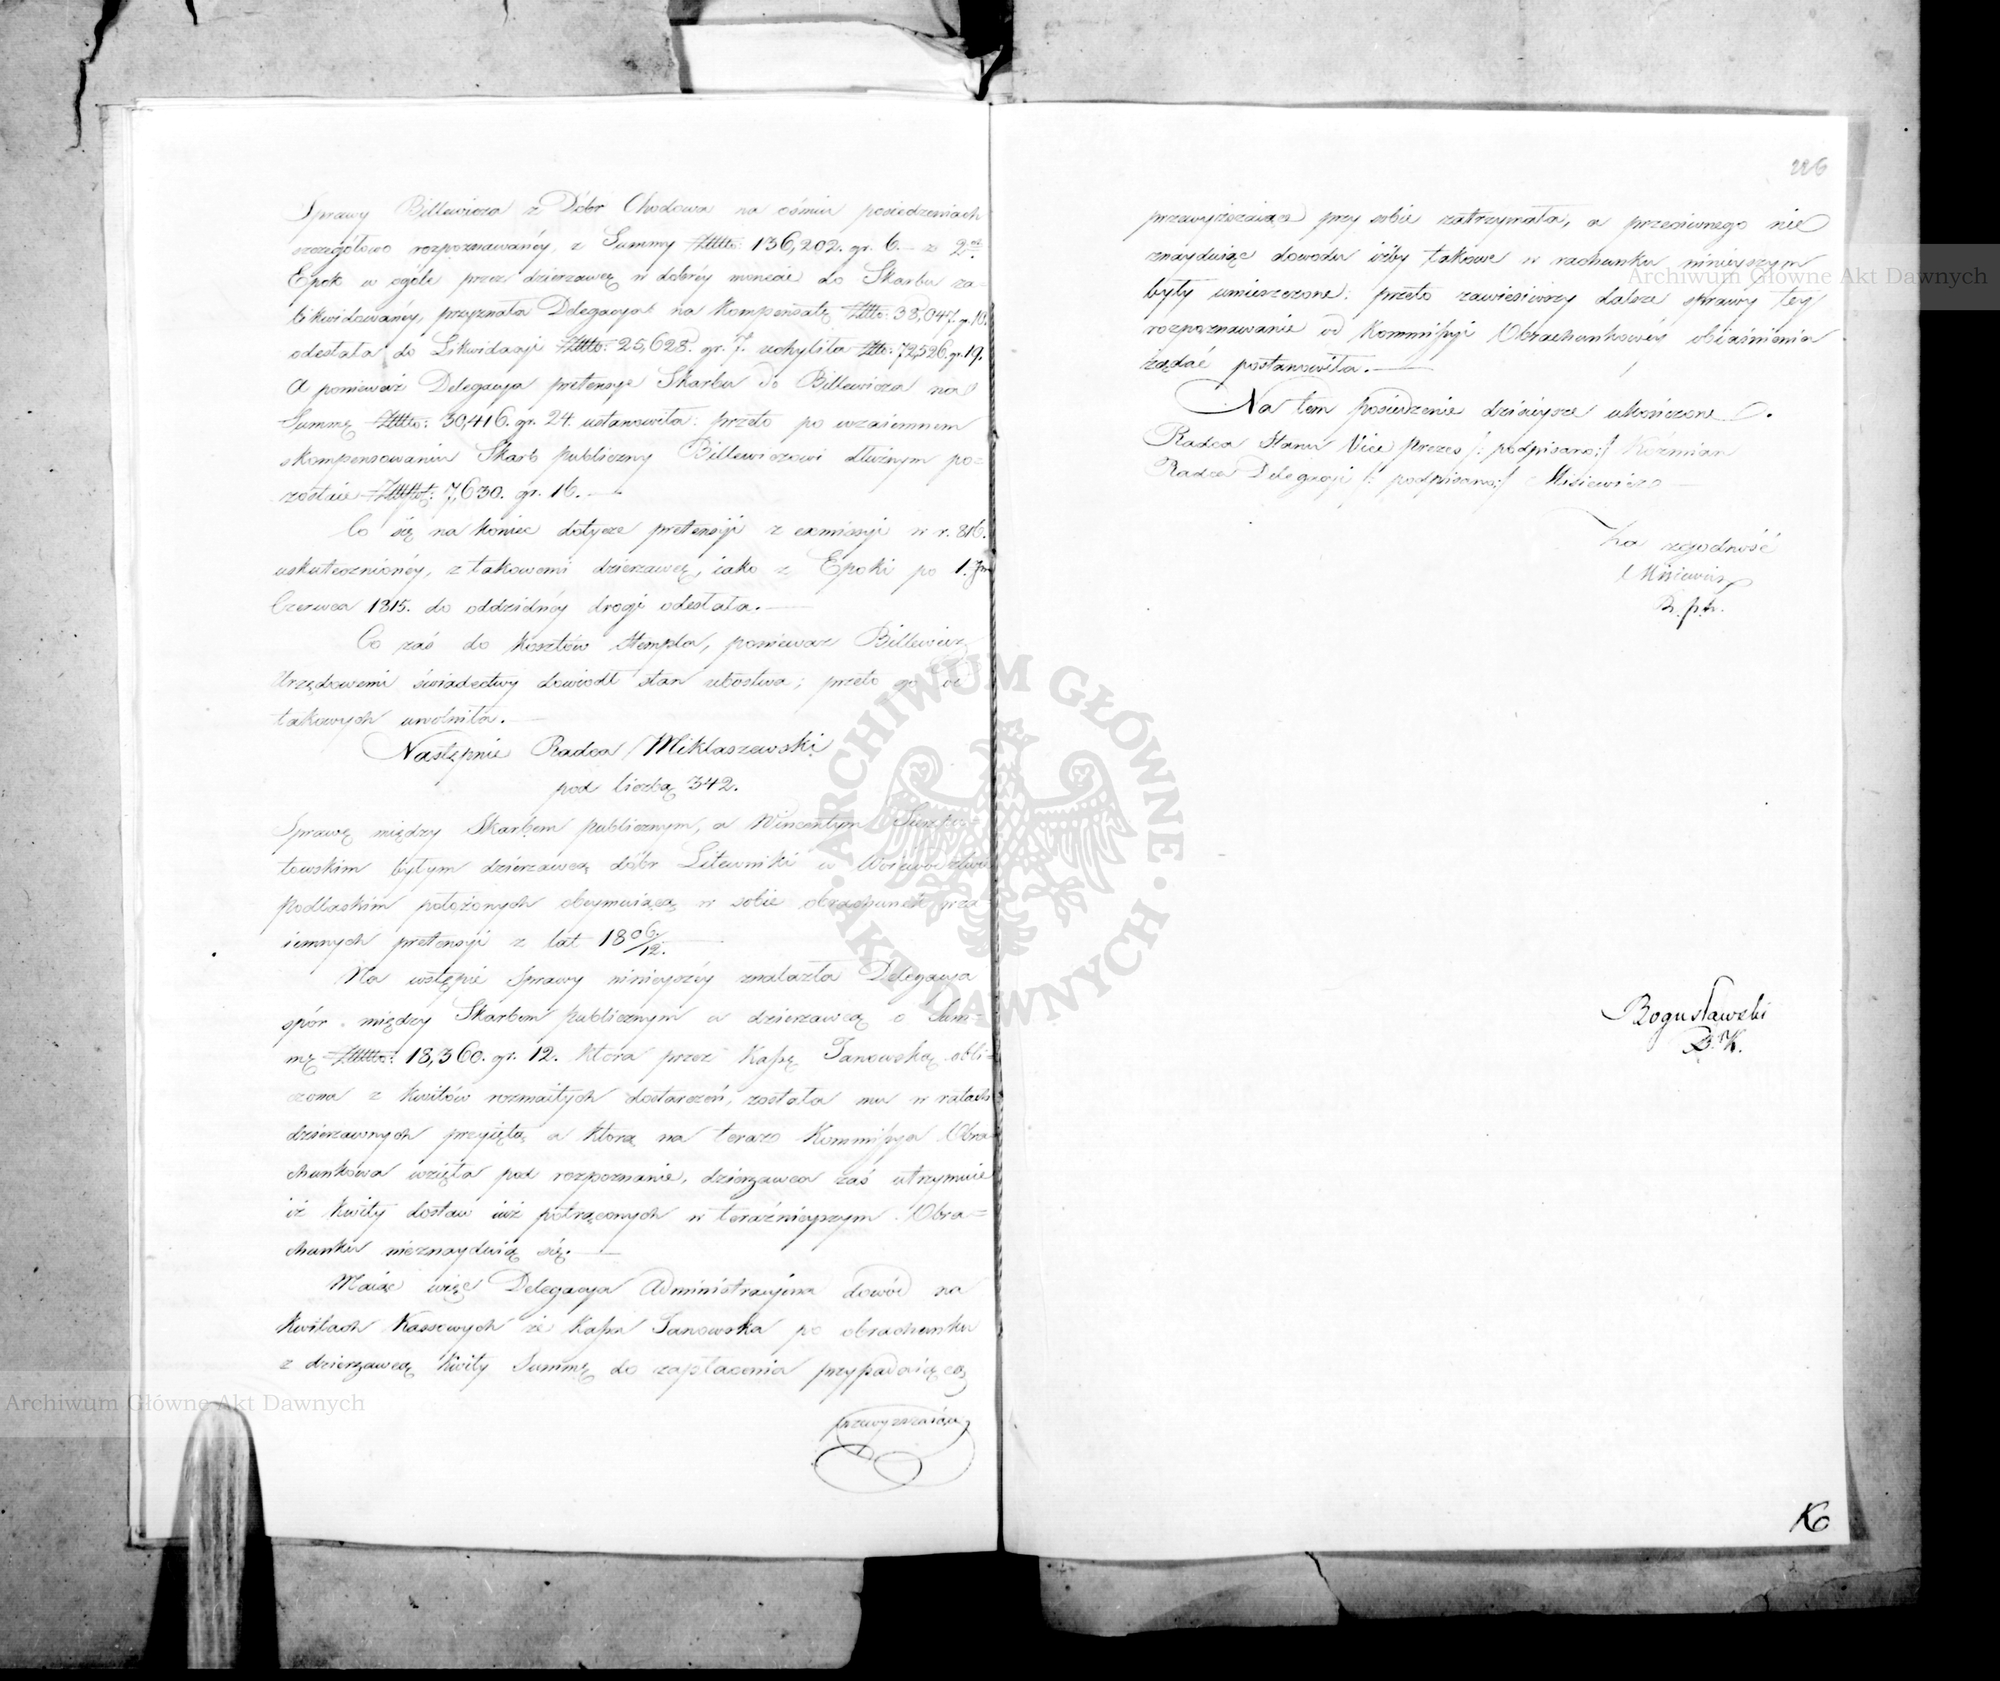 Sprawy Billewicza z Dóbr Chodowa na ośmiu posiedzeniach
szczegółowo rozpoznawanéy, z Summy 136,202. gr. 6. z 2ch
Epok w ogóle przez dzierzawcę w dobréy monecie do Skarbu za-
likwidowanéy, przyznała Delegacya na kompensatę 38,047. gr. 10.
odesłała do Likwidacji 25,628. gr. 7. uchyliła 72,526. gr. 19.
A ponieważ Delegacya pretensye Skarbu do Billewicza na
Summę 30,416. gr. 24. ustanowiła: przeto po wzaiemnem
skompensowaniu Skarb publiczny Billewiczowi dłużnym po-
zostaie 7,630. gr. 16.
Co się na koniec dotycze pretensyi z exmissyi w r. 816.
uskutecznionéy, z takowemi dzierzawcę, iako z Epoki po 1.
Czerwca 1815. do oddzielnéy drogi odesłała.
Co zaś do kosztów stempla, ponieważ Billewicz
Urzędowemi świadectwy dowiodł stan ubostwa; przeto go od
takowych uwolniła.
Następnie Radca Miklaszewski
pod liczbą 342.
Sprawę między Skarbem publicznym, a Wincentym
towskim byłym dzierzawcą dóbr Litewniki w Woiewodztwie
Podlaskim położonych obeymuiącą w sobie obrachunek wza-
iemnych pretensyi z lat 1806/12.
Na wstępie Sprawy ninieyszéy znalazła Delegacya
spór między Skarbem publicznym a dzierzawcą o Sum-
mę 18,360. gr. 12. która przez Kassę Janowską obli-
czona z kwitów rozmaitych dostarczeń, została mu w ratach
dzierzawnych przyiętą a którą na teraz Kommissya Obra-
chunkowa wzięła pod rozpoznanie, dzierzawca zaś utrzymuie
iż kwity dostaw iuż potrąconych w teraźnieyszym Obra-
chunku nieznayduią się.
Maiąc więc Delegacya Administracyina dowód na
kwitach Kassowych że Kassa Janowska po obrachunku
z dzierzawcą kwity Summę do zapłacenia przypadaiącą
przewyższaiące
226
przewyższaiące przy sobie zatrzymała, a przeciwnego nie
znayduiąc dowodu iżby takowe w rachunku ninieyszym
były umieszczone: przeto zawiesiwszy dalsze sprawy tey
rozpoznawanie od Kommissyi Obrachunkowéy obiaśnienia
żądać postanowiła.
Na tem posiedzenie dzisieysze ukończone.
Radca Stanu Vice Prezes /: podpisano :/ Koźmian
Radca Delegacji /: podpisano :/ Misiewicz
Za zgodność
Misiewicz
Bogusławski
Archiwum Główne Akt Dawnych
Archiwum Główne Akt Dawnych
ARCHIWUM GŁÓWNE · AKT DAWNYCH ·